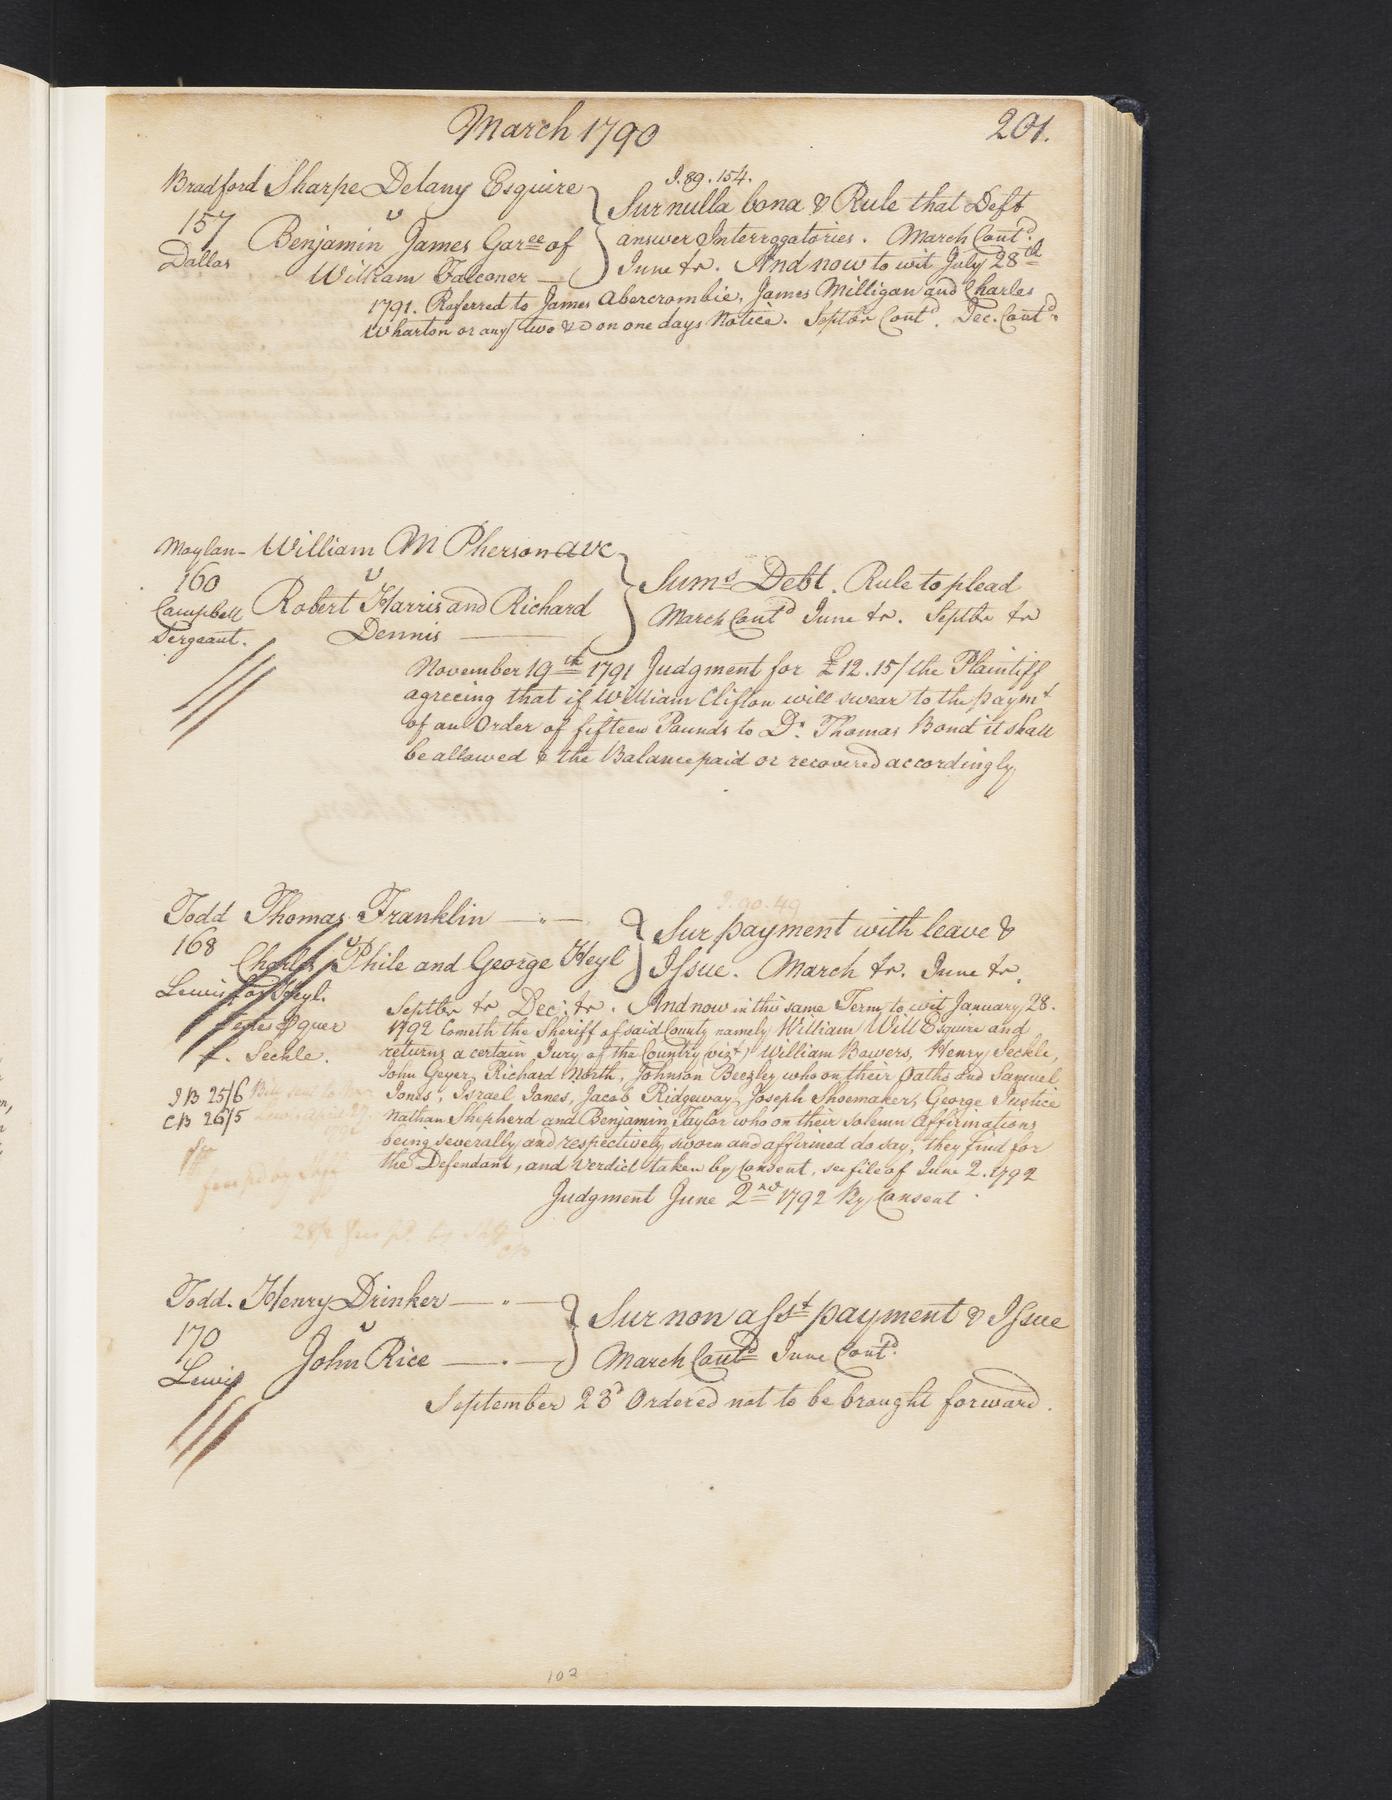 March 1790
201.
J. 89. 154.
Bradford Sharpe Delany Esquire
157 v
Dallas Benjamin James Garee of
William Falconer
Sur nulla bona & Rule that Deft
answer Interrogatories. March Contd.
June &c. And now to wit July 28th
1791. Referred to James Abercrombie, James Milligan and Charles
Wharton or any two &c on one days Notice. Septbr Contd. Dec. Contd.
Moylan - William McPherson avc
160 v
Campbell Robert Harris and Richard
Sergeant. Dennis
Sums Debt. Rule to plead
March Contd June &c. Septbr &c
November 19th 1791 Judgment for £12.15/ the Plaintiff
agreeing that if William Clifton will swear to the paymt
of an Order of fifteen Pounds to Dr. Thomas Bond it shall
be allowed & the Balance paid or recovered accordingly
J. 90. 49
Todd Thomas Franklin
168 v
Charles Phile and George Heyl
Lewis for Heyl.
Sur payment with leave &
Issue. March &c. June &c.
Septbr &c Dec: &c. And now in this same Term, to wit January 28.
1792 Cometh the Sheriff of said County namely William Will Esquire and
returns a certain Jury of the Country (vizt) William Bowers, Henry Seckle,
John Geyer, Richard North, Johnson Beezley who on their Oaths and Samuel
Jones, Israel Jones, Jacob Ridgeway, Joseph Shoemaker, George Justice
Nathan Shepherd and Benjamin Taylor who on their solemn Affirmations
being severally and respectively sworn and affirmed do say, they find for
the Defendant, and Verdict taken by Consent, see file of June 2. 1792
Judgment June 2nd 1792 By Consent
Seckle.
JB 25/6
CB 26/5
Todd. Henry Drinker
170 v
Lewis John Rice
Sur non asst payment & Issue
March Contd June Contd.
September 23d Ordered not to be brought forward.
102